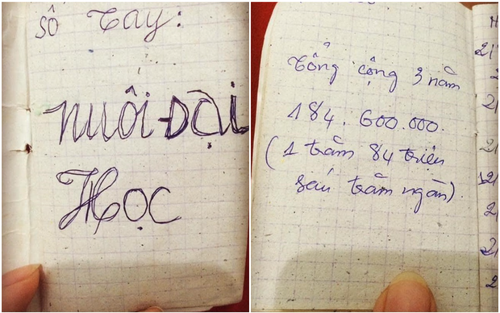 Sổ Tay:
NUÔI ĐẠI
HỌC
Tổng cộng 3 năm
184.600.000.
(1 trăm 84 triệu
sáu trăm ngàn).
21
2
21
21
2
21
2